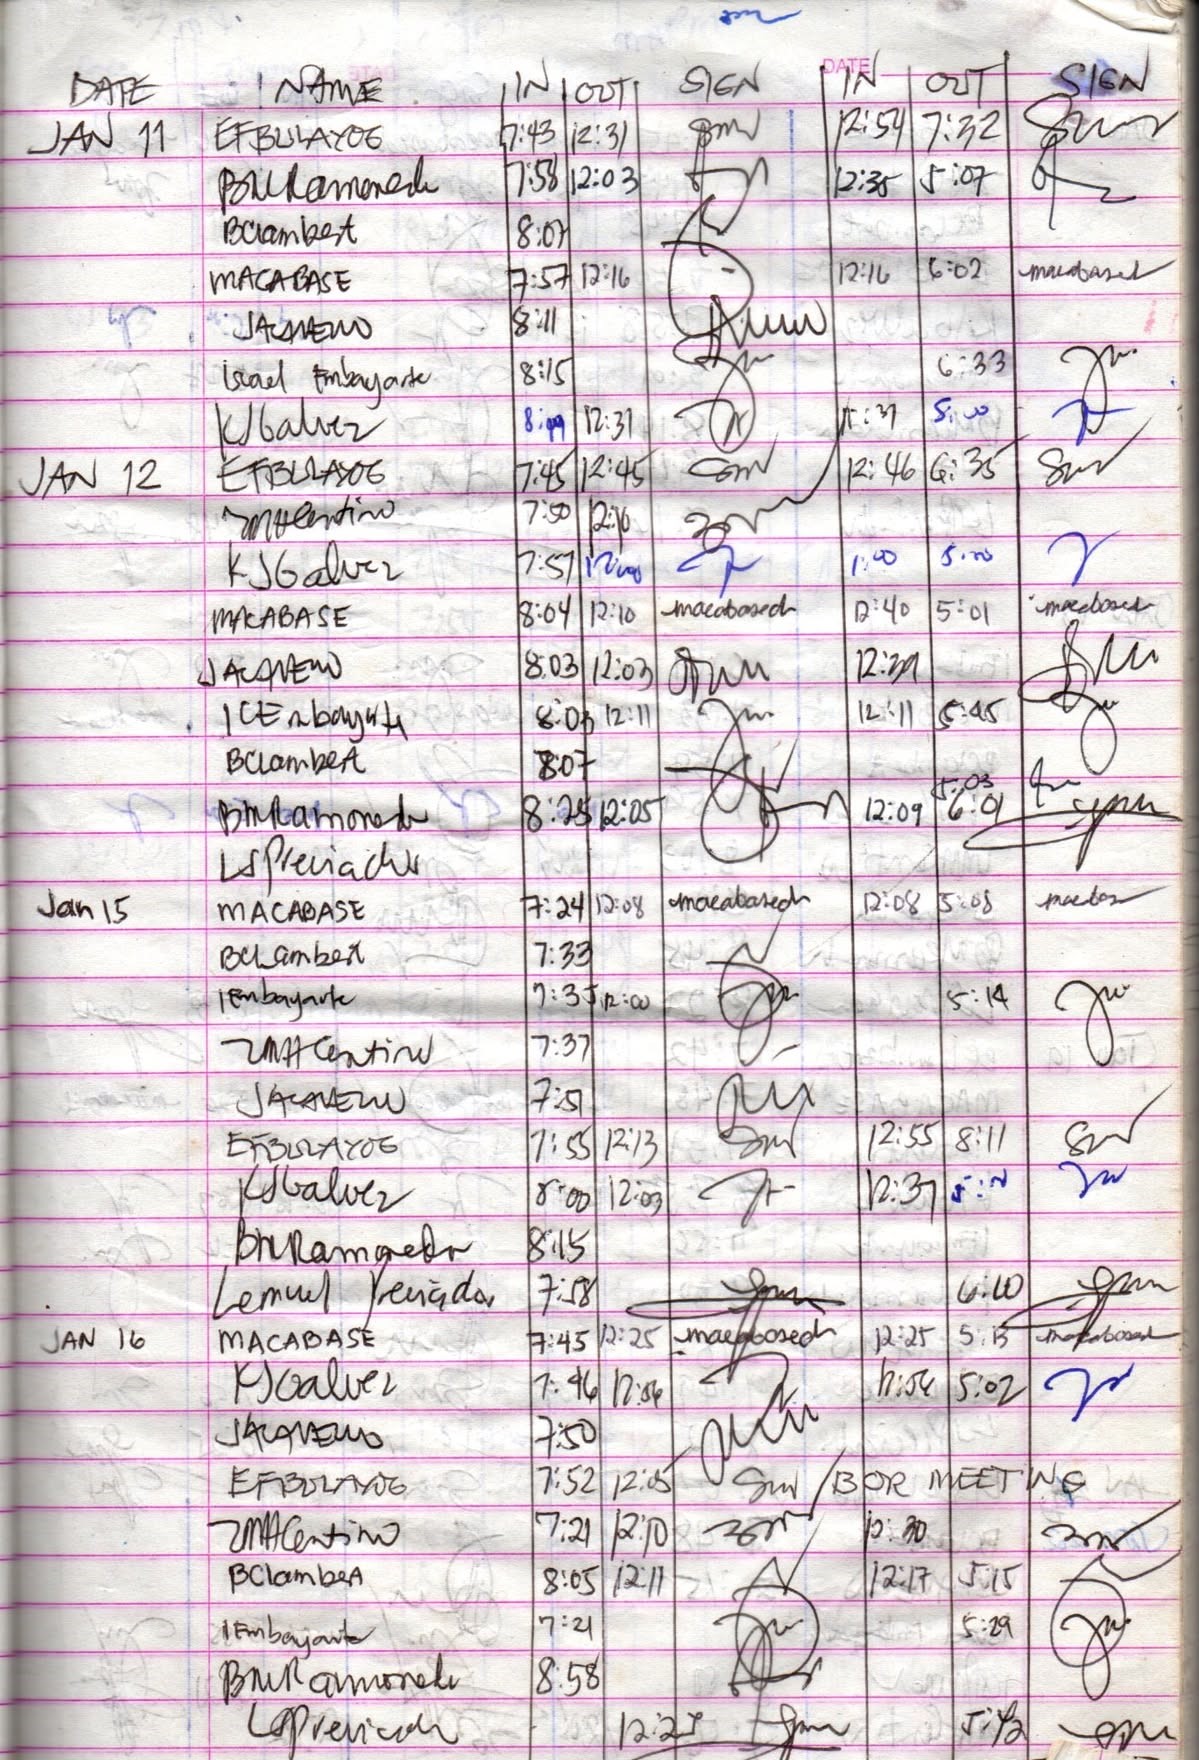 DATE
DATE NAME IN OUT SIGN IN OUT SIGN
JAN 11 EFBULAYOG 7:43 12:31 12:54 7:32
BMRamoneda 7:58 12:03 12:35 5:07
BCLambert 8:07
MACABASE 7:57 12:16 12:16 6:02 macabased
8:11
Israel Embayarte 8:15 6:33
KJGalvez 12:31
JAN 12 EFBULAYOG 7:45 12:45 12:46 6:35
ZMHCentino 7:50 12:10
KJGalvez 7:57 1:00
MACABASE 8:04 12:10 macabased 12:40 5:01 macabased
8:03 12:03
ICEmbayarte 8:03 12:11 12:11 5:45
BCLambert 8:07
5:03
BMRamoneda 8:25 12:05 12:09 6:01
LSPreciados
Jan 15 MACABASE 7:24 12:08 macabased 12:08 5:08
BCLambert 7:33
IEmbayarte 7:35 12:00 5:14
ZMHCentino 7:37
7:51
EFBULAYOG 7:55 12:13 12:55 8:11
KJGalvez 8:00 12:03 12:37
BMRamoneda 8:15
Lemuel Preciados 7:58 6:10
JAN 16 MACABASE 7:45 12:25 macabased 12:25 5:13 macabased
KJGalvez 7:46 12:56 5:02
7:50
EFBULAYOG 7:52 12:05 BOR MEETING
ZMHCentino 7:21 12:10 12:30
BCLambert 8:05 12:11 12:17 5:15
IEmbayarte 7:21 5:29
BMRamoneda 8:58
LSPreciados 12:25 5:42